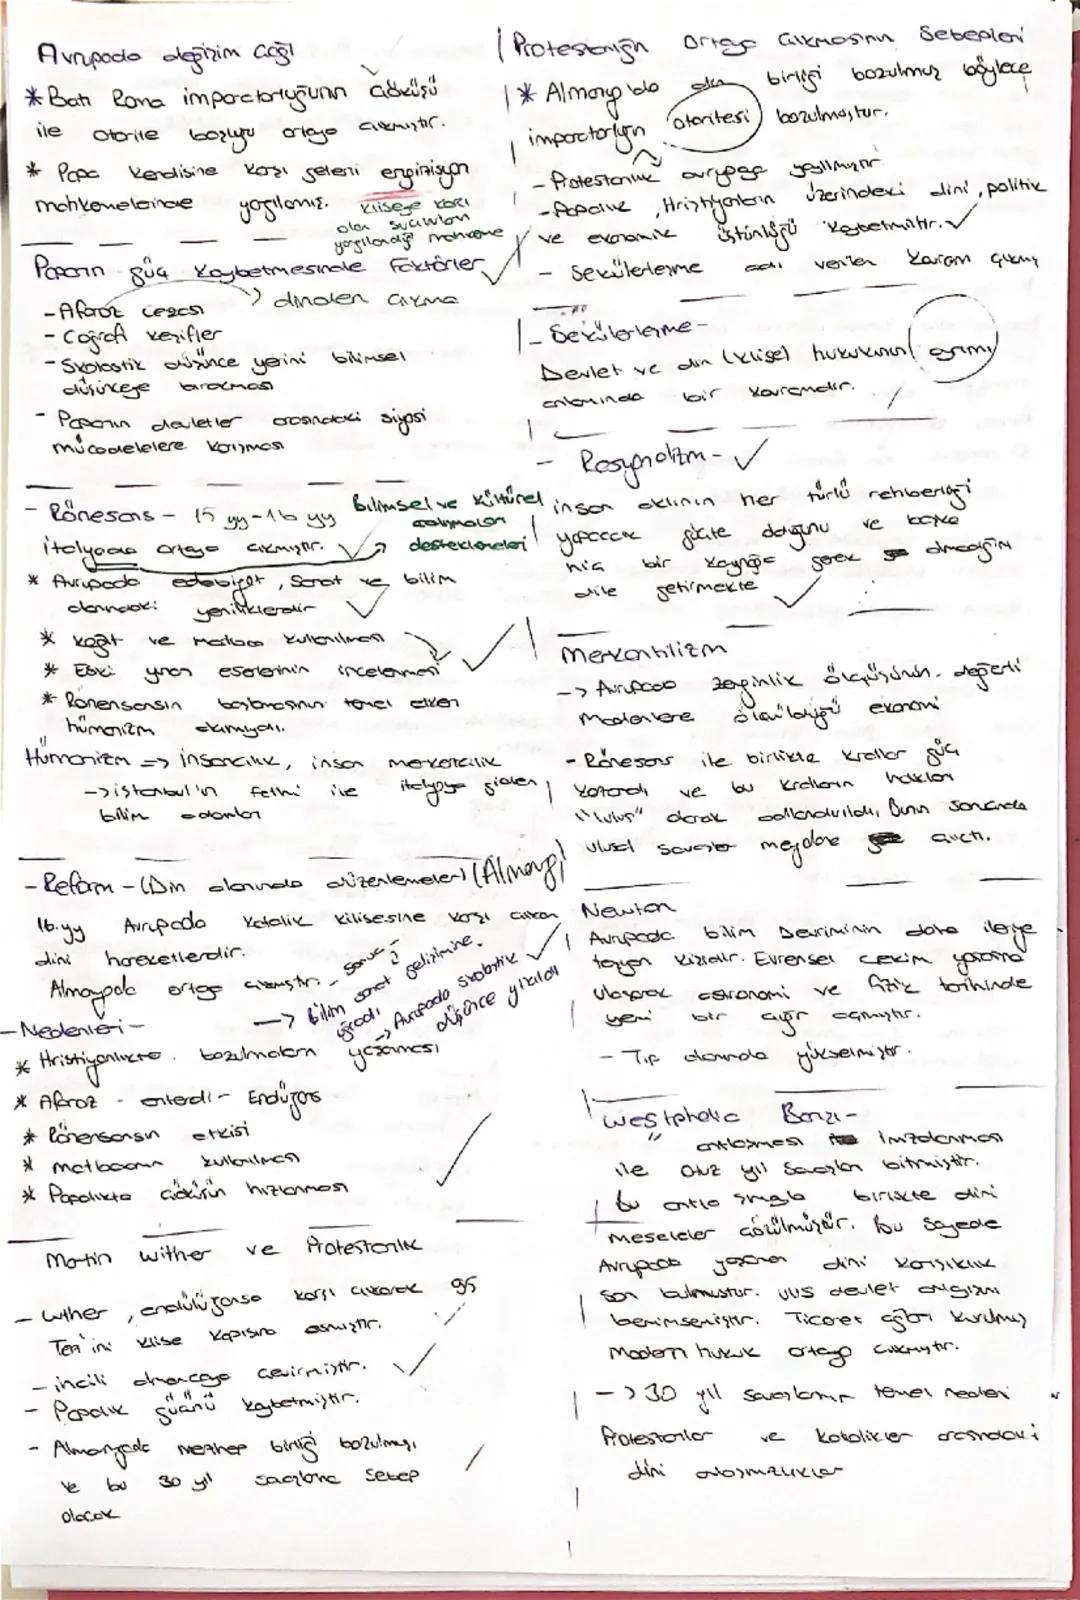 Avrupada değişim çağı
* Batı Roma imparatorluğunun çöküşü
ile otorite boşluğu ortaya çıkmıştır.
* Papa kendisine karşı geleni engizisyon
mahkemelerinde yargılamış.
Kliseye karşı
olan suçluların
yargılandığı mahkeme
Papanın güç kaybetmesinde Faktörler
- Aforoz cezası
dinden çıkma
- Coğrafi keşifler
- Skolastik düşünce yerini bilimsel
düşünceye bırakması
- Papanın devletler arasındaki siyasi
mücadelelere karışması
- Rönesans - 15 yy-16 yy
Bilimsel ve Kültürel
çalışmaları
desteklemeleri
italyada ortaya çıkmıştır.
* Avrupada edebiyat, Sanat ve bilim
alanındaki yeniliklerdir
* kağıt ve matbaa kullanılması
* Eski yunan eserlerinin incelenmesi
* Rönensansın başlamasının temel etken
hümanizm akımıydı.
Hümanizm => insancılık, insan merkezcilik
-> istanbul'un fethi ile italyaya giden
bilim adamları
- Reform - (Din alanında düzenlemeler) (Almanya)
16.yy Avrupada Katolik kilisesine karşı çıkan
dini hareketlerdir.
Almanyada ortaya çıkmıştır.
- sonuç:
-> bilim sanat gelişimine
uğradı
-> Avrupada skolastik
düşünce yıkıldı
- Nedenleri -
* Hristiyanlıkta bozulmaların yaşanması
* Aforoz - enterdi - Endüljans
* Rönensansın etkisi
* matbaanın kullanılması
* Papalıkta çöküşün hızlanması
Martin wither ve Protestanlık
- wither, endülüjansa karşı çıkarak 95
Tez'ini klise kapısına asmıştır.
- incili almancaya çevirmiştir.
- Papalık gücünü kaybetmiştir.
- Almanyada mezhep birliği bozulmuş,
ve bu 30 yıl savaşlarına sebep
olacak
Protestanlığın Ortaya Çıkmasının Sebepleri
* Almanya'da din birliği bozulmuş böylece
imparatorluğun otoritesi bozulmuştur.
- Protestanlık avrupaya yayılmıştır
- Papalık, Hristiyanların üzerindeki dini, politik
ve ekonomik üstünlüğü kaybetmiştir.
- Sekülerleşme adı verilen kavram çıkmış
- Sekülerleşme -
Devlet ve din (klise) hukukunun ayrımı
anlamında bir kavramdır.
- Rasynolizm -
insan aklının her türlü rehberliği
yapacak güçte olduğunu ve başka
hiç bir kaynağa gerek olmadığını
dile getirmekte
Merkantilizm
-> Avrupada zenginlik ölçüsünün, değerli
madenlere ölçüldüğü ekonomi
- Rönesans ile birlikte krallar güç
kazandı ve bu kralların halkları
"ulus" olarak adlandırıldı, Bunun sonunda
ulusal savaşlar meydana çıktı.
Newton
Avrupada bilim Devriminin daha ileriye
taşıyan kişidir. Evrensel çekim yasasına
ulaşarak astronomi ve fizik tarihinde
yeni bir çığır açmıştır.
- Tıp alanında yükselmiştir.
Westphalia Barışı -
" antlaşması imzalanması
ile Otuz yıl Savaşları bitmiştir.
Bu antlaşmayla birlikte dini
meseleler çözülmüştür. Bu Sayede
Avrupada yaşanan dini karışıklık
son bulmuştur. ulus devlet anlayışı
benimsemiştir. Ticaret ağları kurulmuş
Modern hukuk ortaya çıkmıştır.
-> 30 yıl savaşlarının temel nedeni
Protestanlar ve katolikler arasındaki
dini anlaşmazlıklar